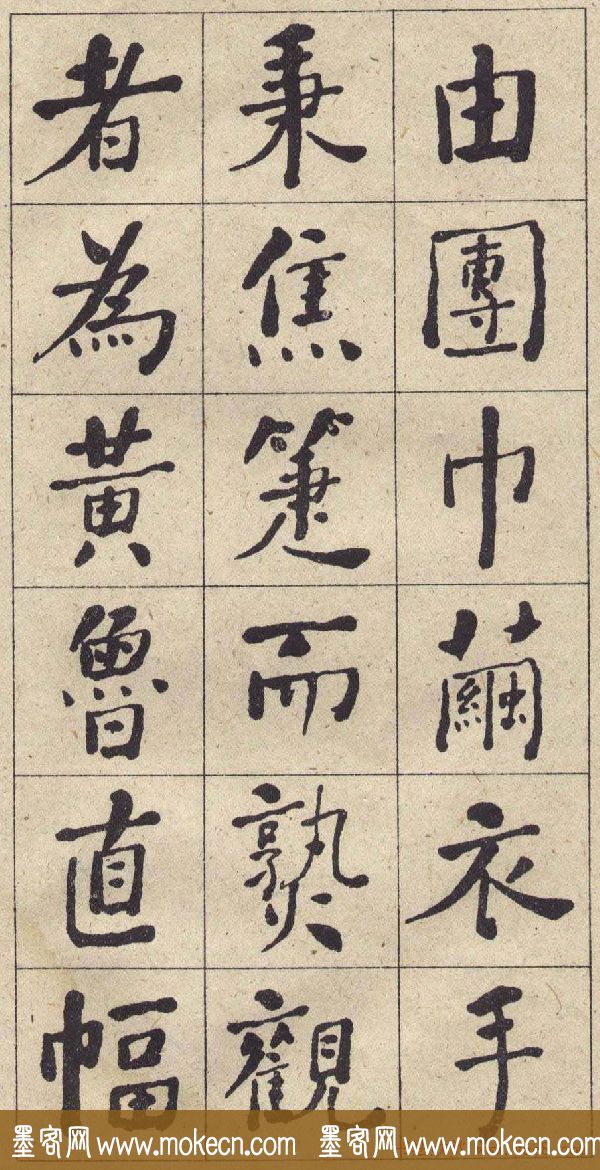 由團巾繭衣手
秉焦箑而熟觀
者為黃魯直幅
墨客网 www.mokecn.com 墨客网 www.mokecn.com